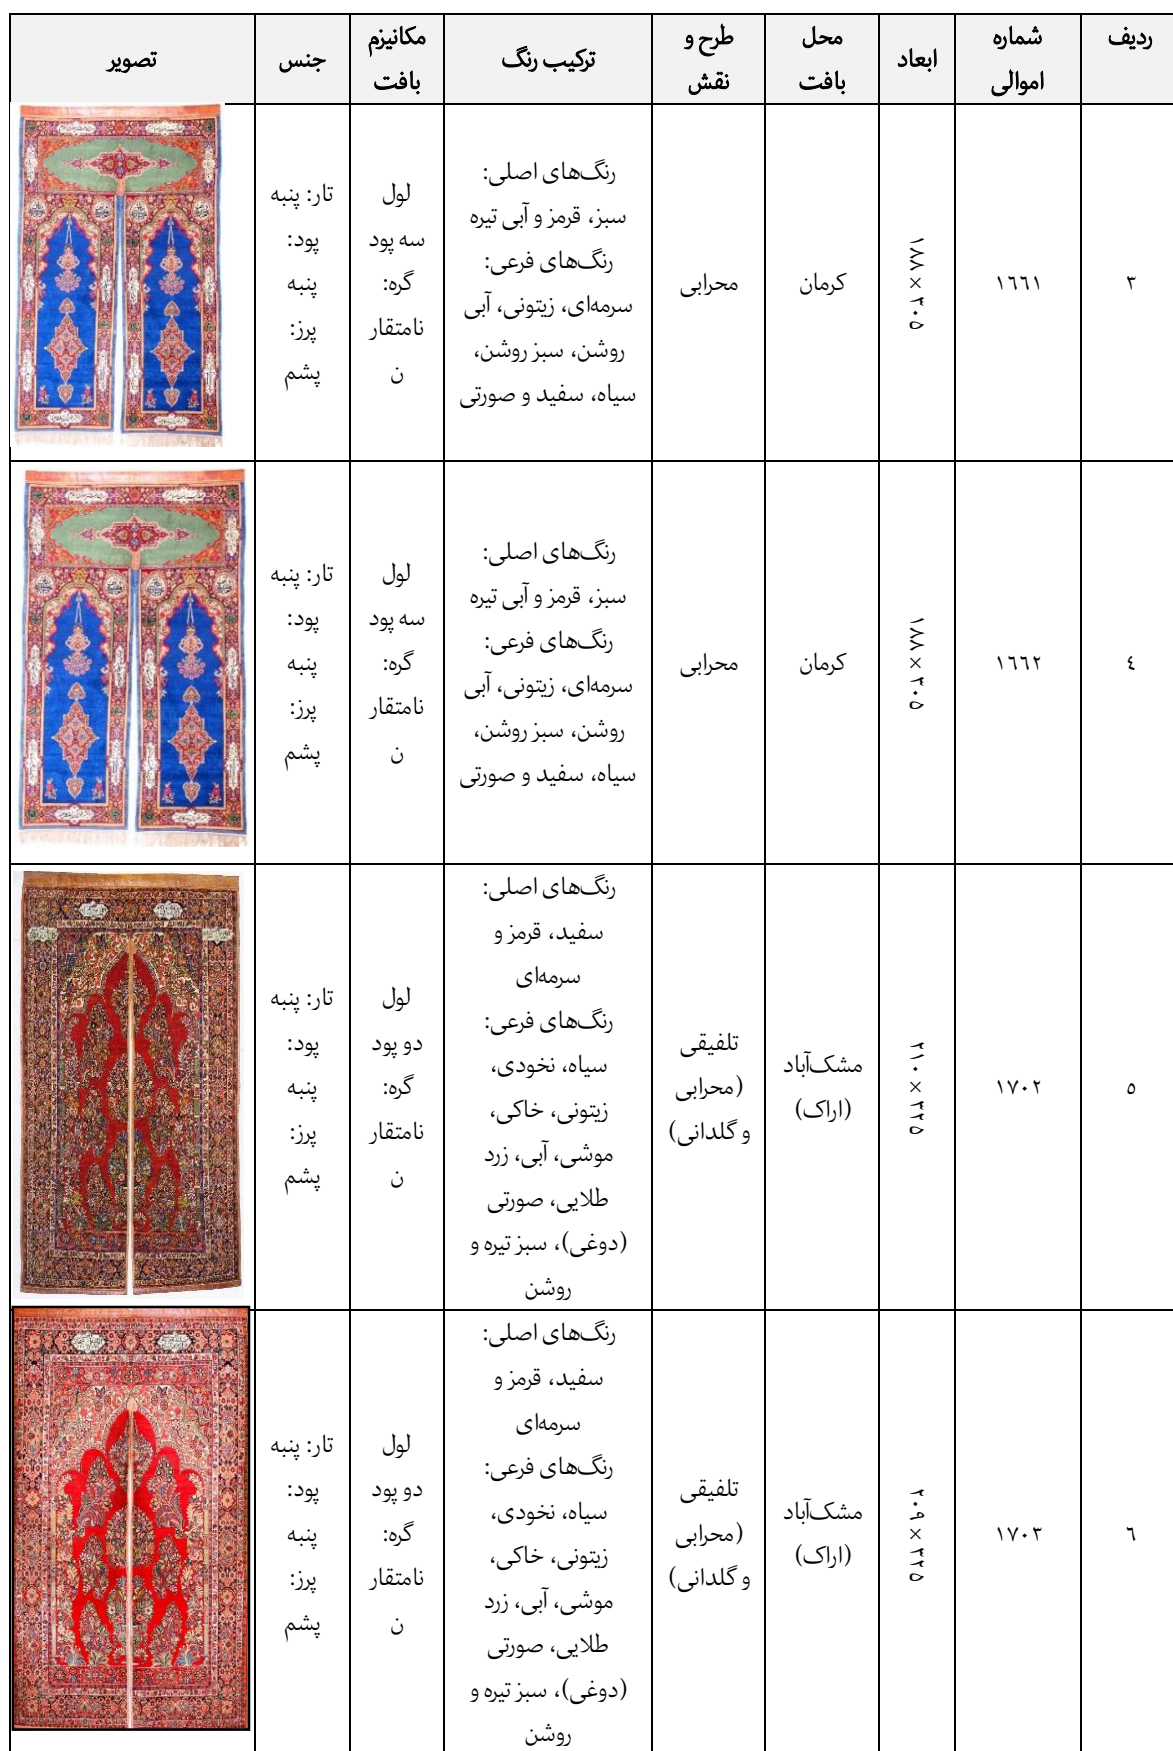 ردیف
شماره
اموالی
ابعاد
محل
بافت
طرح و
نقش
ترکیب رنگ
مکانیزم
بافت
جنس
تصویر
٣
١٦٦١
١٨٨×٣٠٥
کرمان
محرابی
رنگ‌های اصلی:
سبز، قرمز و آبی تیره
رنگ‌های فرعی:
سرمه‌ای، زیتونی، آبی
روشن، سبز روشن،
سیاه، سفید و صورتی
لول
سه پود
گره:
نامتقار
ن
تار: پنبه
پود:
پنبه
پرز:
پشم
٤
١٦٦٢
١٨٨×٣٠٥
کرمان
محرابی
رنگ‌های اصلی:
سبز، قرمز و آبی تیره
رنگ‌های فرعی:
سرمه‌ای، زیتونی، آبی
روشن، سبز روشن،
سیاه، سفید و صورتی
لول
سه پود
گره:
نامتقار
ن
تار: پنبه
پود:
پنبه
پرز:
پشم
٥
١٧٠٢
٢١٠×٣٢٥
مشک‌آباد
(اراک)
تلفیقی
(محرابی
و گلدانی)
رنگ‌های اصلی:
سفید، قرمز و
سرمه‌ای
رنگ‌های فرعی:
سیاه، نخودی،
زیتونی، خاکی،
موشی، آبی، زرد
طلایی، صورتی
(دوغی)، سبز تیره و
روشن
لول
دو پود
گره:
نامتقار
ن
تار: پنبه
پود:
پنبه
پرز:
پشم
٦
١٧٠٣
٢٠٩×٣٢٥
مشک‌آباد
(اراک)
تلفیقی
(محرابی
و گلدانی)
رنگ‌های اصلی:
سفید، قرمز و
سرمه‌ای
رنگ‌های فرعی:
سیاه، نخودی،
زیتونی، خاکی،
موشی، آبی، زرد
طلایی، صورتی
(دوغی)، سبز تیره و
روشن
لول
دو پود
گره:
نامتقار
ن
تار: پنبه
پود:
پنبه
پرز:
پشم